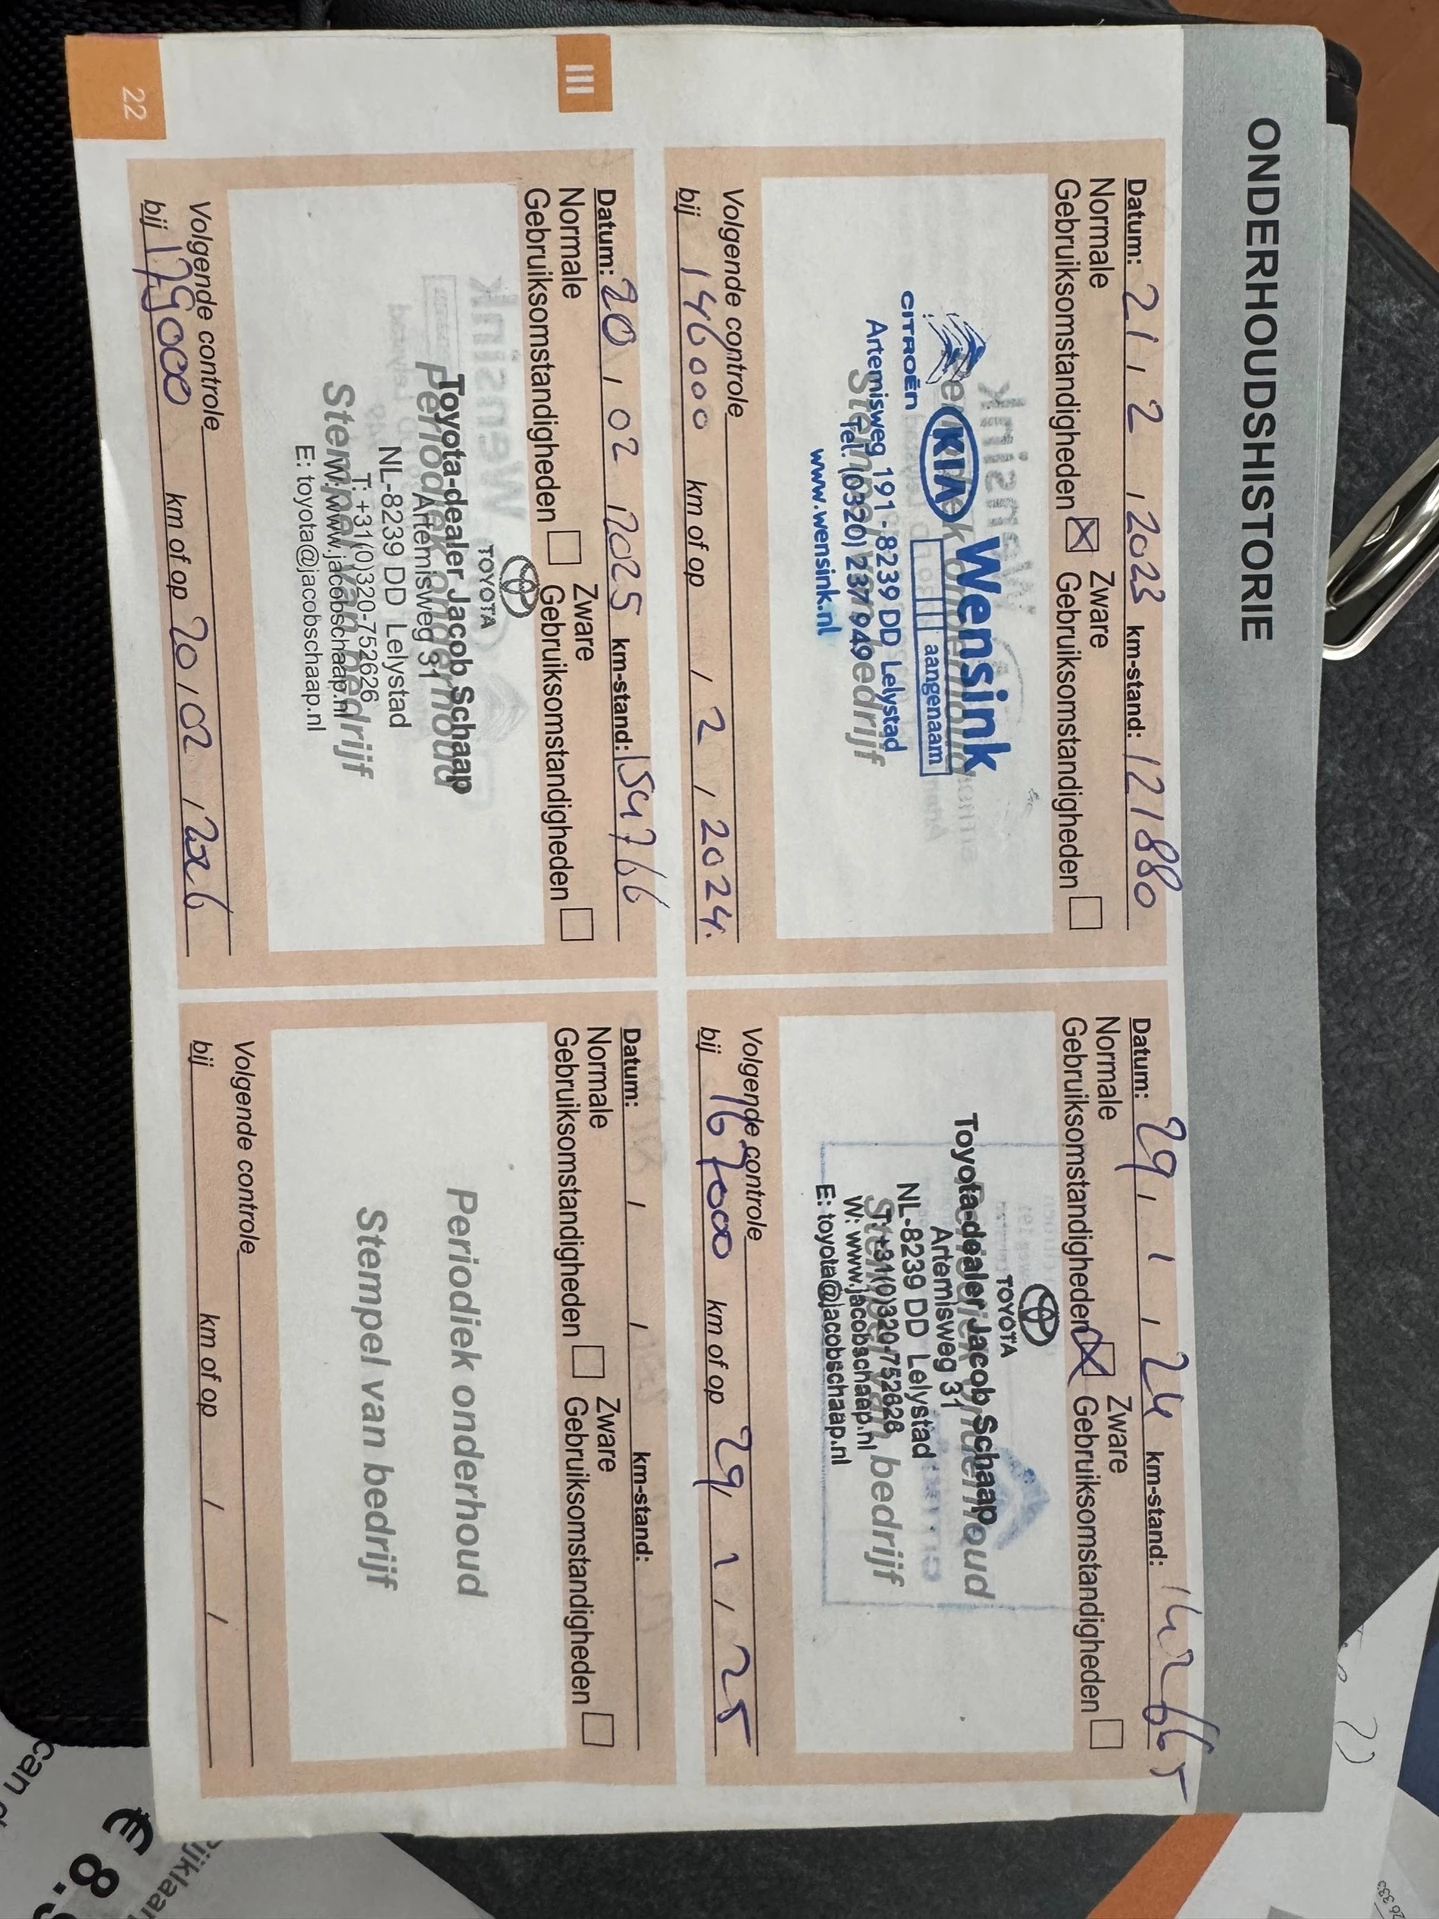 ONDERHOUDSHISTORIE
Datum: 21 / 2 / 2023 km-stand: 121880
Normale Zware
Gebruiksomstandigheden ☒ Gebruiksomstandigheden ☐
Periodiek onderhoud
Stempel van bedrijf
CITROËN KIA Wensink
aangenaam
Artemisweg 191 - 8239 DD Lelystad
Tel. (0320) 237 949
www.wensink.nl
Volgende controle
bij 146000 km of op / 2 / 2024.
Datum: 29 / 1 / 24 km-stand: 142665
Normale Zware
Gebruiksomstandigheden ☒ Gebruiksomstandigheden ☐
Periodiek onderhoud
Stempel van bedrijf
TOYOTA
Toyota-dealer Jacob Schaap
Artemisweg 31
NL-8239 DD Lelystad
T: +31(0)320-752626
W: www.jacobschaap.nl
E: toyota@jacobschaap.nl
Volgende controle
bij 167000 km of op 29 / 1 / 25
III
Datum: 20 / 02 / 2025 km-stand: 154766
Normale Zware
Gebruiksomstandigheden ☐ Gebruiksomstandigheden ☐
Periodiek onderhoud
Stempel van bedrijf
TOYOTA
Toyota-dealer Jacob Schaap
Artemisweg 31
NL-8239 DD Lelystad
T: +31(0)320-752626
W: www.jacobschaap.nl
E: toyota@jacobschaap.nl
Volgende controle
bij 179000 km of op 20 / 02 / 2026
Datum: / / km-stand:
Normale Zware
Gebruiksomstandigheden ☐ Gebruiksomstandigheden ☐
Periodiek onderhoud
Stempel van bedrijf
Volgende controle
bij km of op / /
22
€ 8.